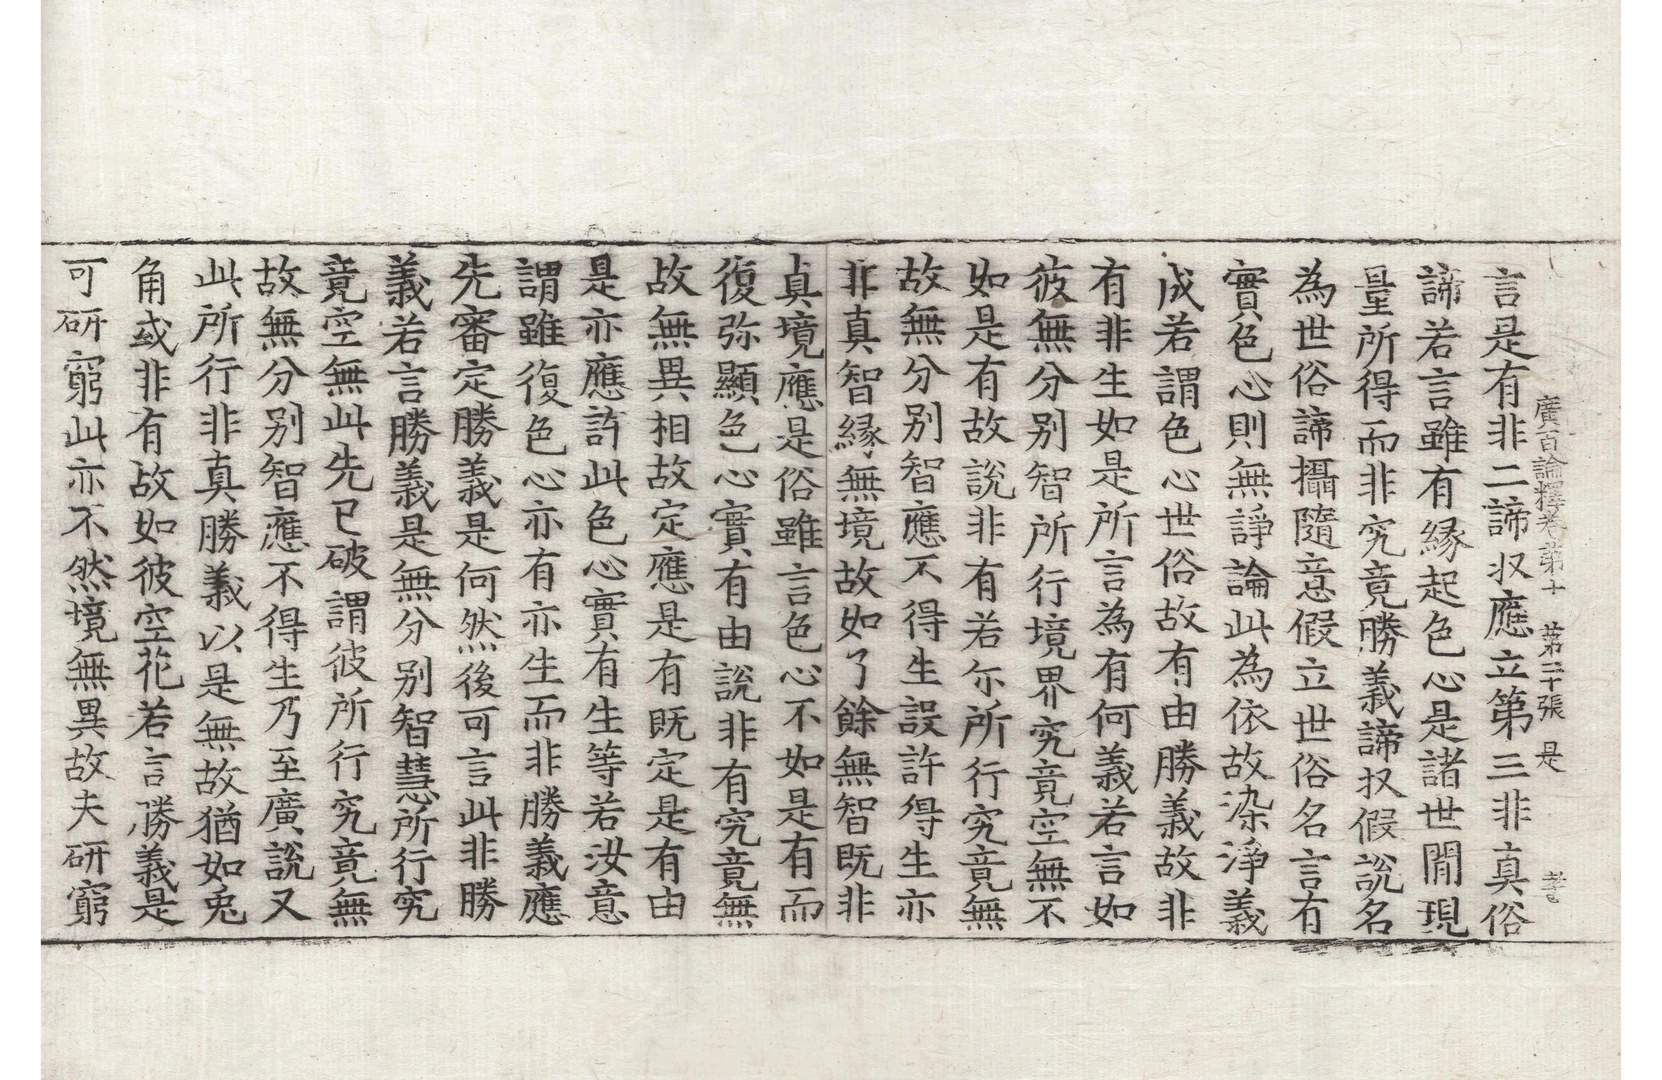 廣百論釋卷第十　第二十張　是
言是有非二諦収應立第三非真俗
諦若言雖有縁起色心是諸世間現
量所得而非究竟勝義諦収假說名
為世俗諦攝隨意假立世俗名言有
實色心則無諍論此為依故染淨義
成若謂色心世俗故有由勝義故非
有非生如是所言為有何義若言如
彼無分别智所行境界究竟空無不
如是有故說非有若尒所行究竟無
故無分别智應不得生設許得生亦
非真智縁無境故如了餘無智既非
真境應是俗雖言色心不如是有而
復弥顯色心實有由說非有究竟無
故無異相故定應是有既定是有由
是亦應許此色心實有生等若汝意
謂雖復色心亦有亦生而非勝義應
先審定勝義是何然後可言此非勝
義若言勝義是無分别智慧所行究
竟空無此先已破謂彼所行究竟無
故無分别智應不得生乃至廣說又
此所行非真勝義以是無故猶如兎
角或非有故如彼空花若言勝義是
可研窮此亦不然境無異故夫研窮